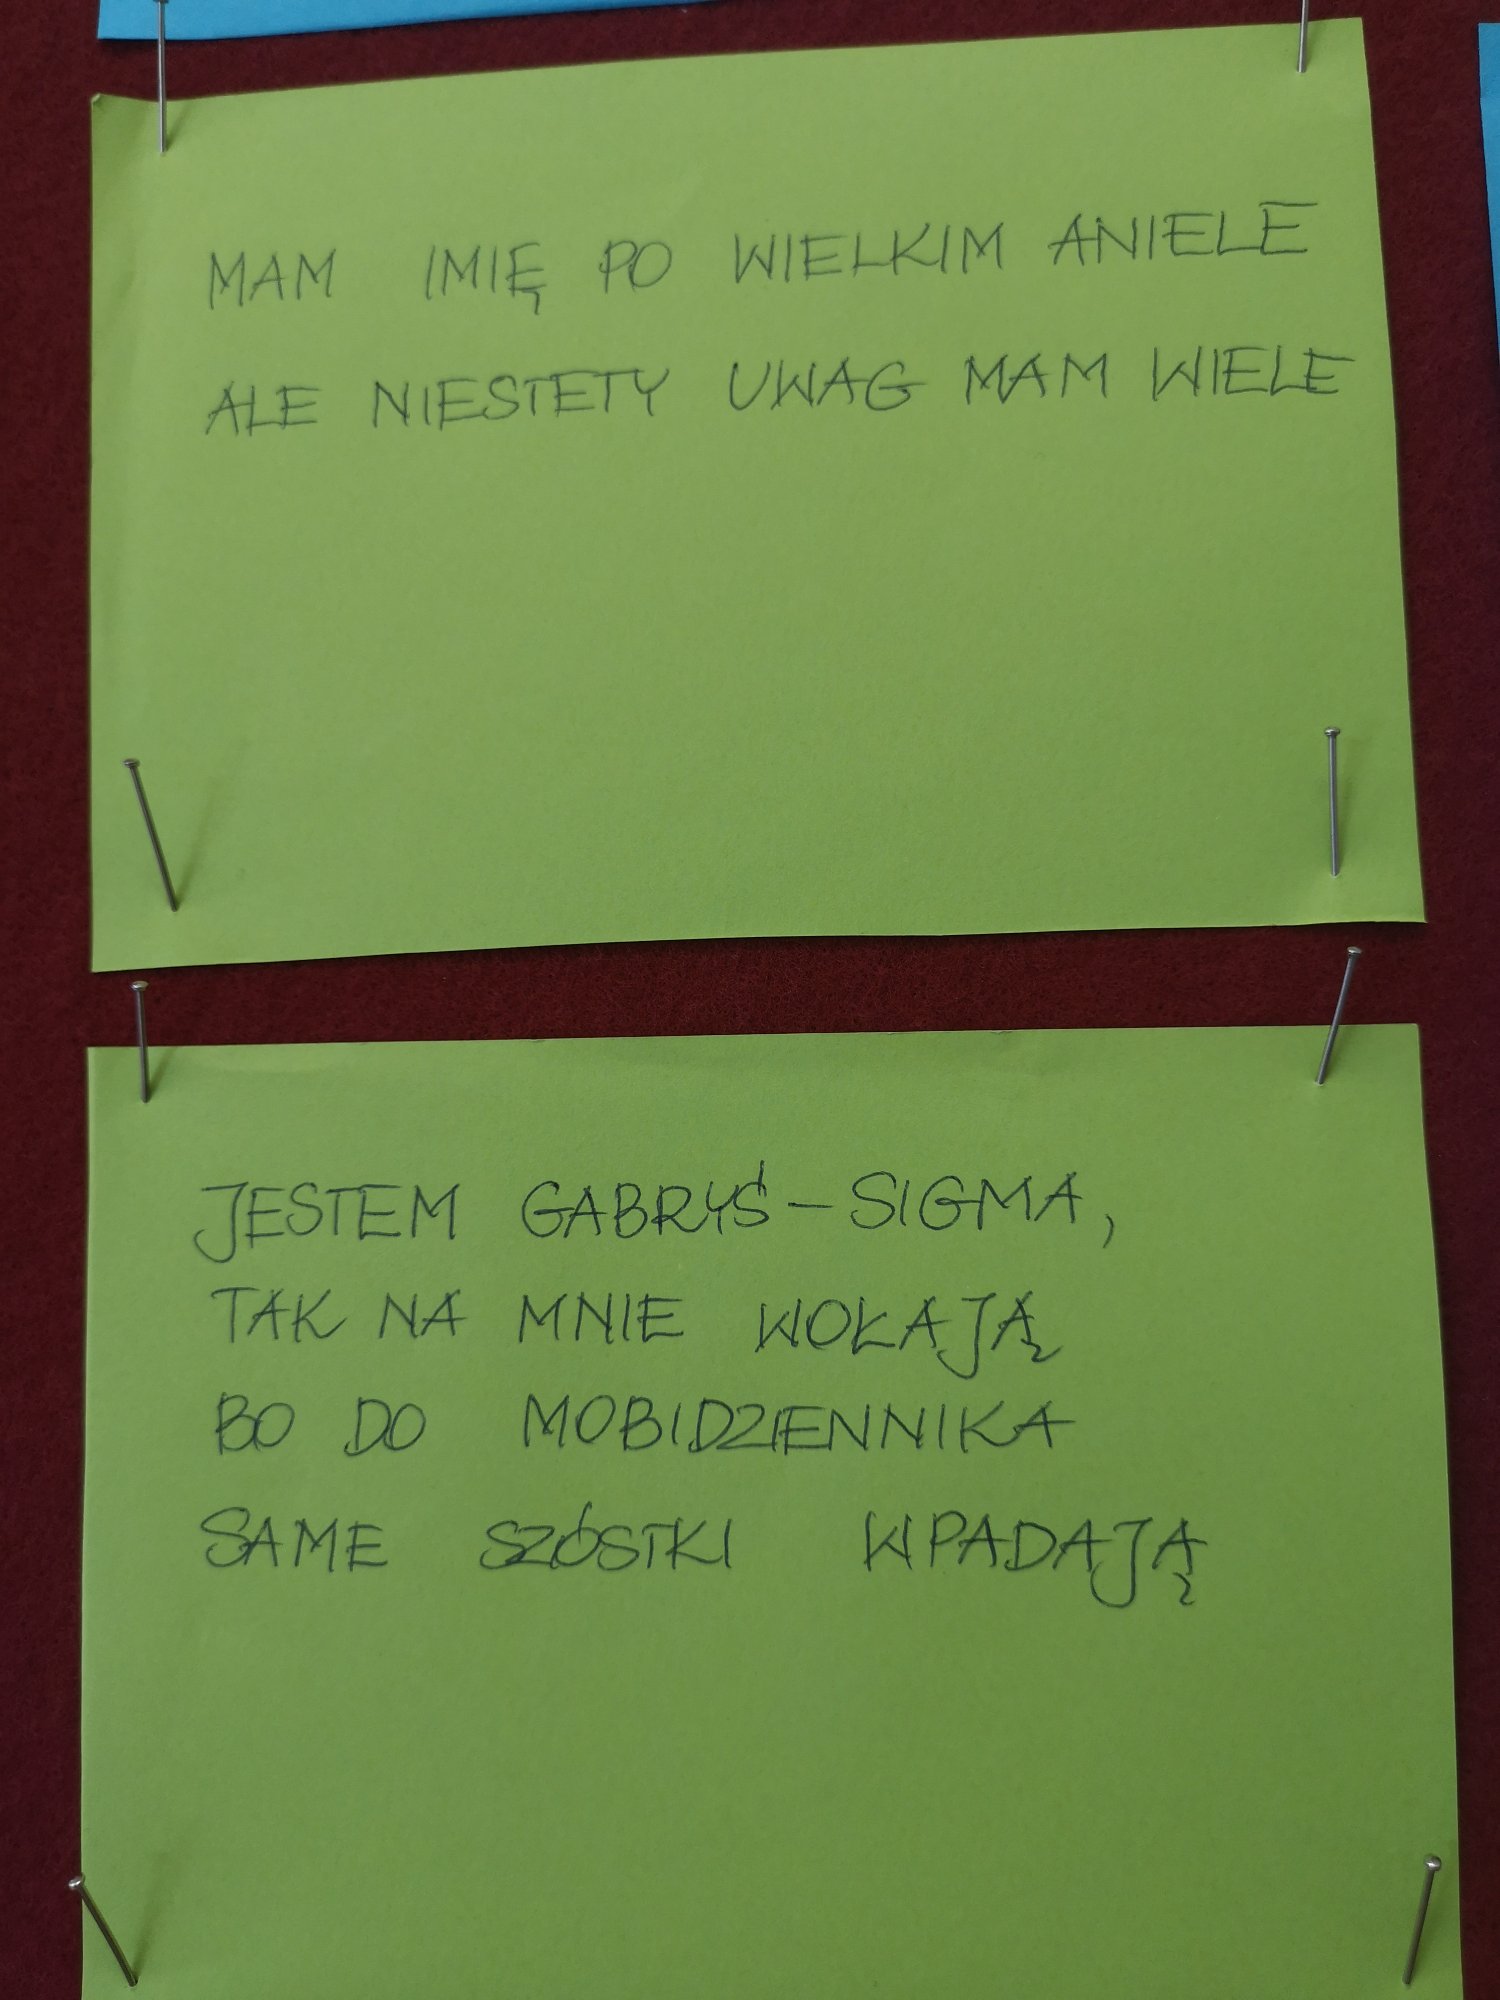 MAM IMIĘ PO WIELKIM ANIELE
ALE NIESTETY UWAG MAM WIELE
JESTEM GABRYŚ – SIGMA,
TAK NA MNIE WOŁAJĄ
BO DO MOBIDZIENNIKA
SAME SZÓSTKI WPADAJĄ